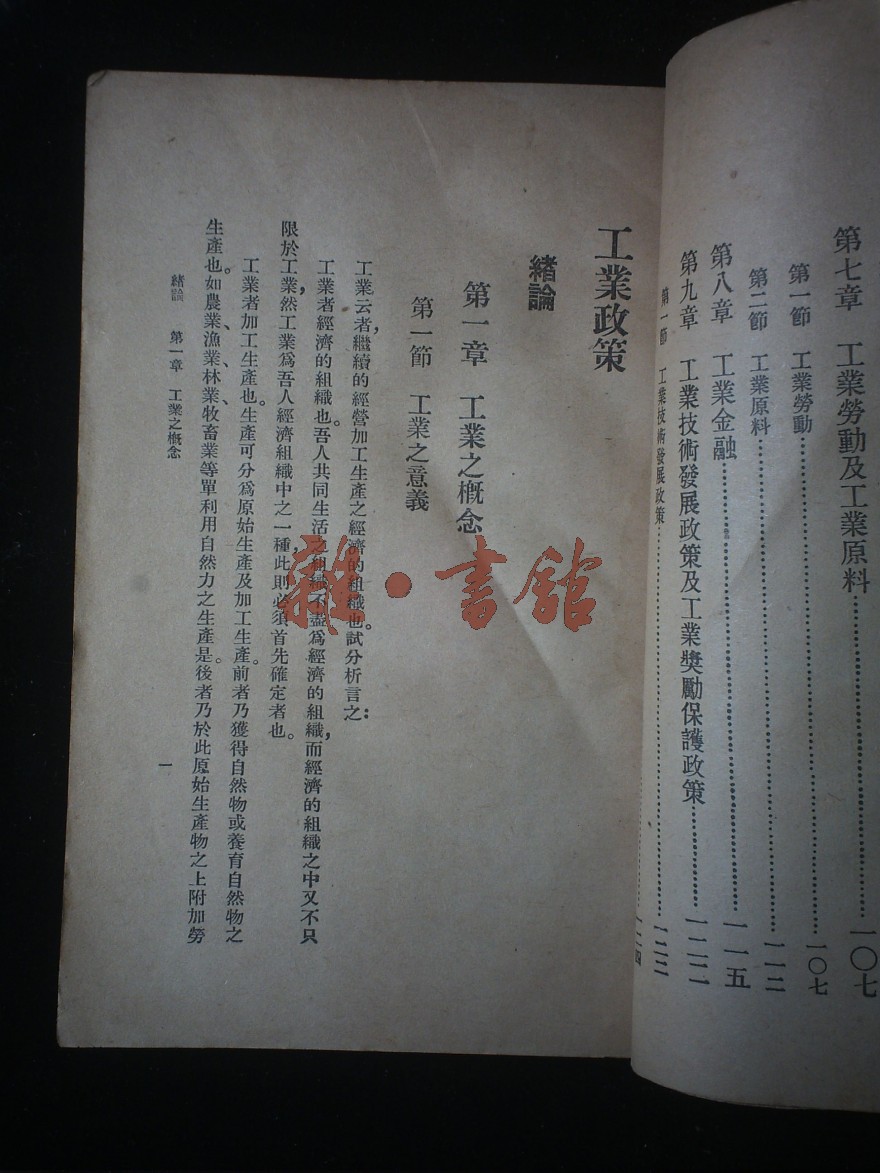 第七章　工業勞動及工業原料……一〇七
第一節　工業勞動……一〇七
第二節　工業原料……一一二
第八章　工業金融……一一五
第九章　工業技術發展政策及工業獎勵保護政策……一二二
第一節　工業技術發展政策……一二二
……一二四
工業政策
緒論
第一章　工業之概念
第一節　工業之意義
工業云者，繼續的經營加工生產之經濟的組織也。試分析言之：
工業者經濟的組織也。吾人共同生活之組織不盡爲經濟的組織，而經濟的組織之中又不只
限於工業，然工業爲吾人經濟組織中之一種，此則必須首先確定者也。
工業者加工生產也。生產可分爲原始生產及加工生產。前者乃獲得自然物或養育自然物之
生產也。如農業、漁業、林業、牧畜業等單利用自然力之生產是。後者乃於此原始生產物之上附加勞
緒論　第一章　工業之概念
一
雜·書館